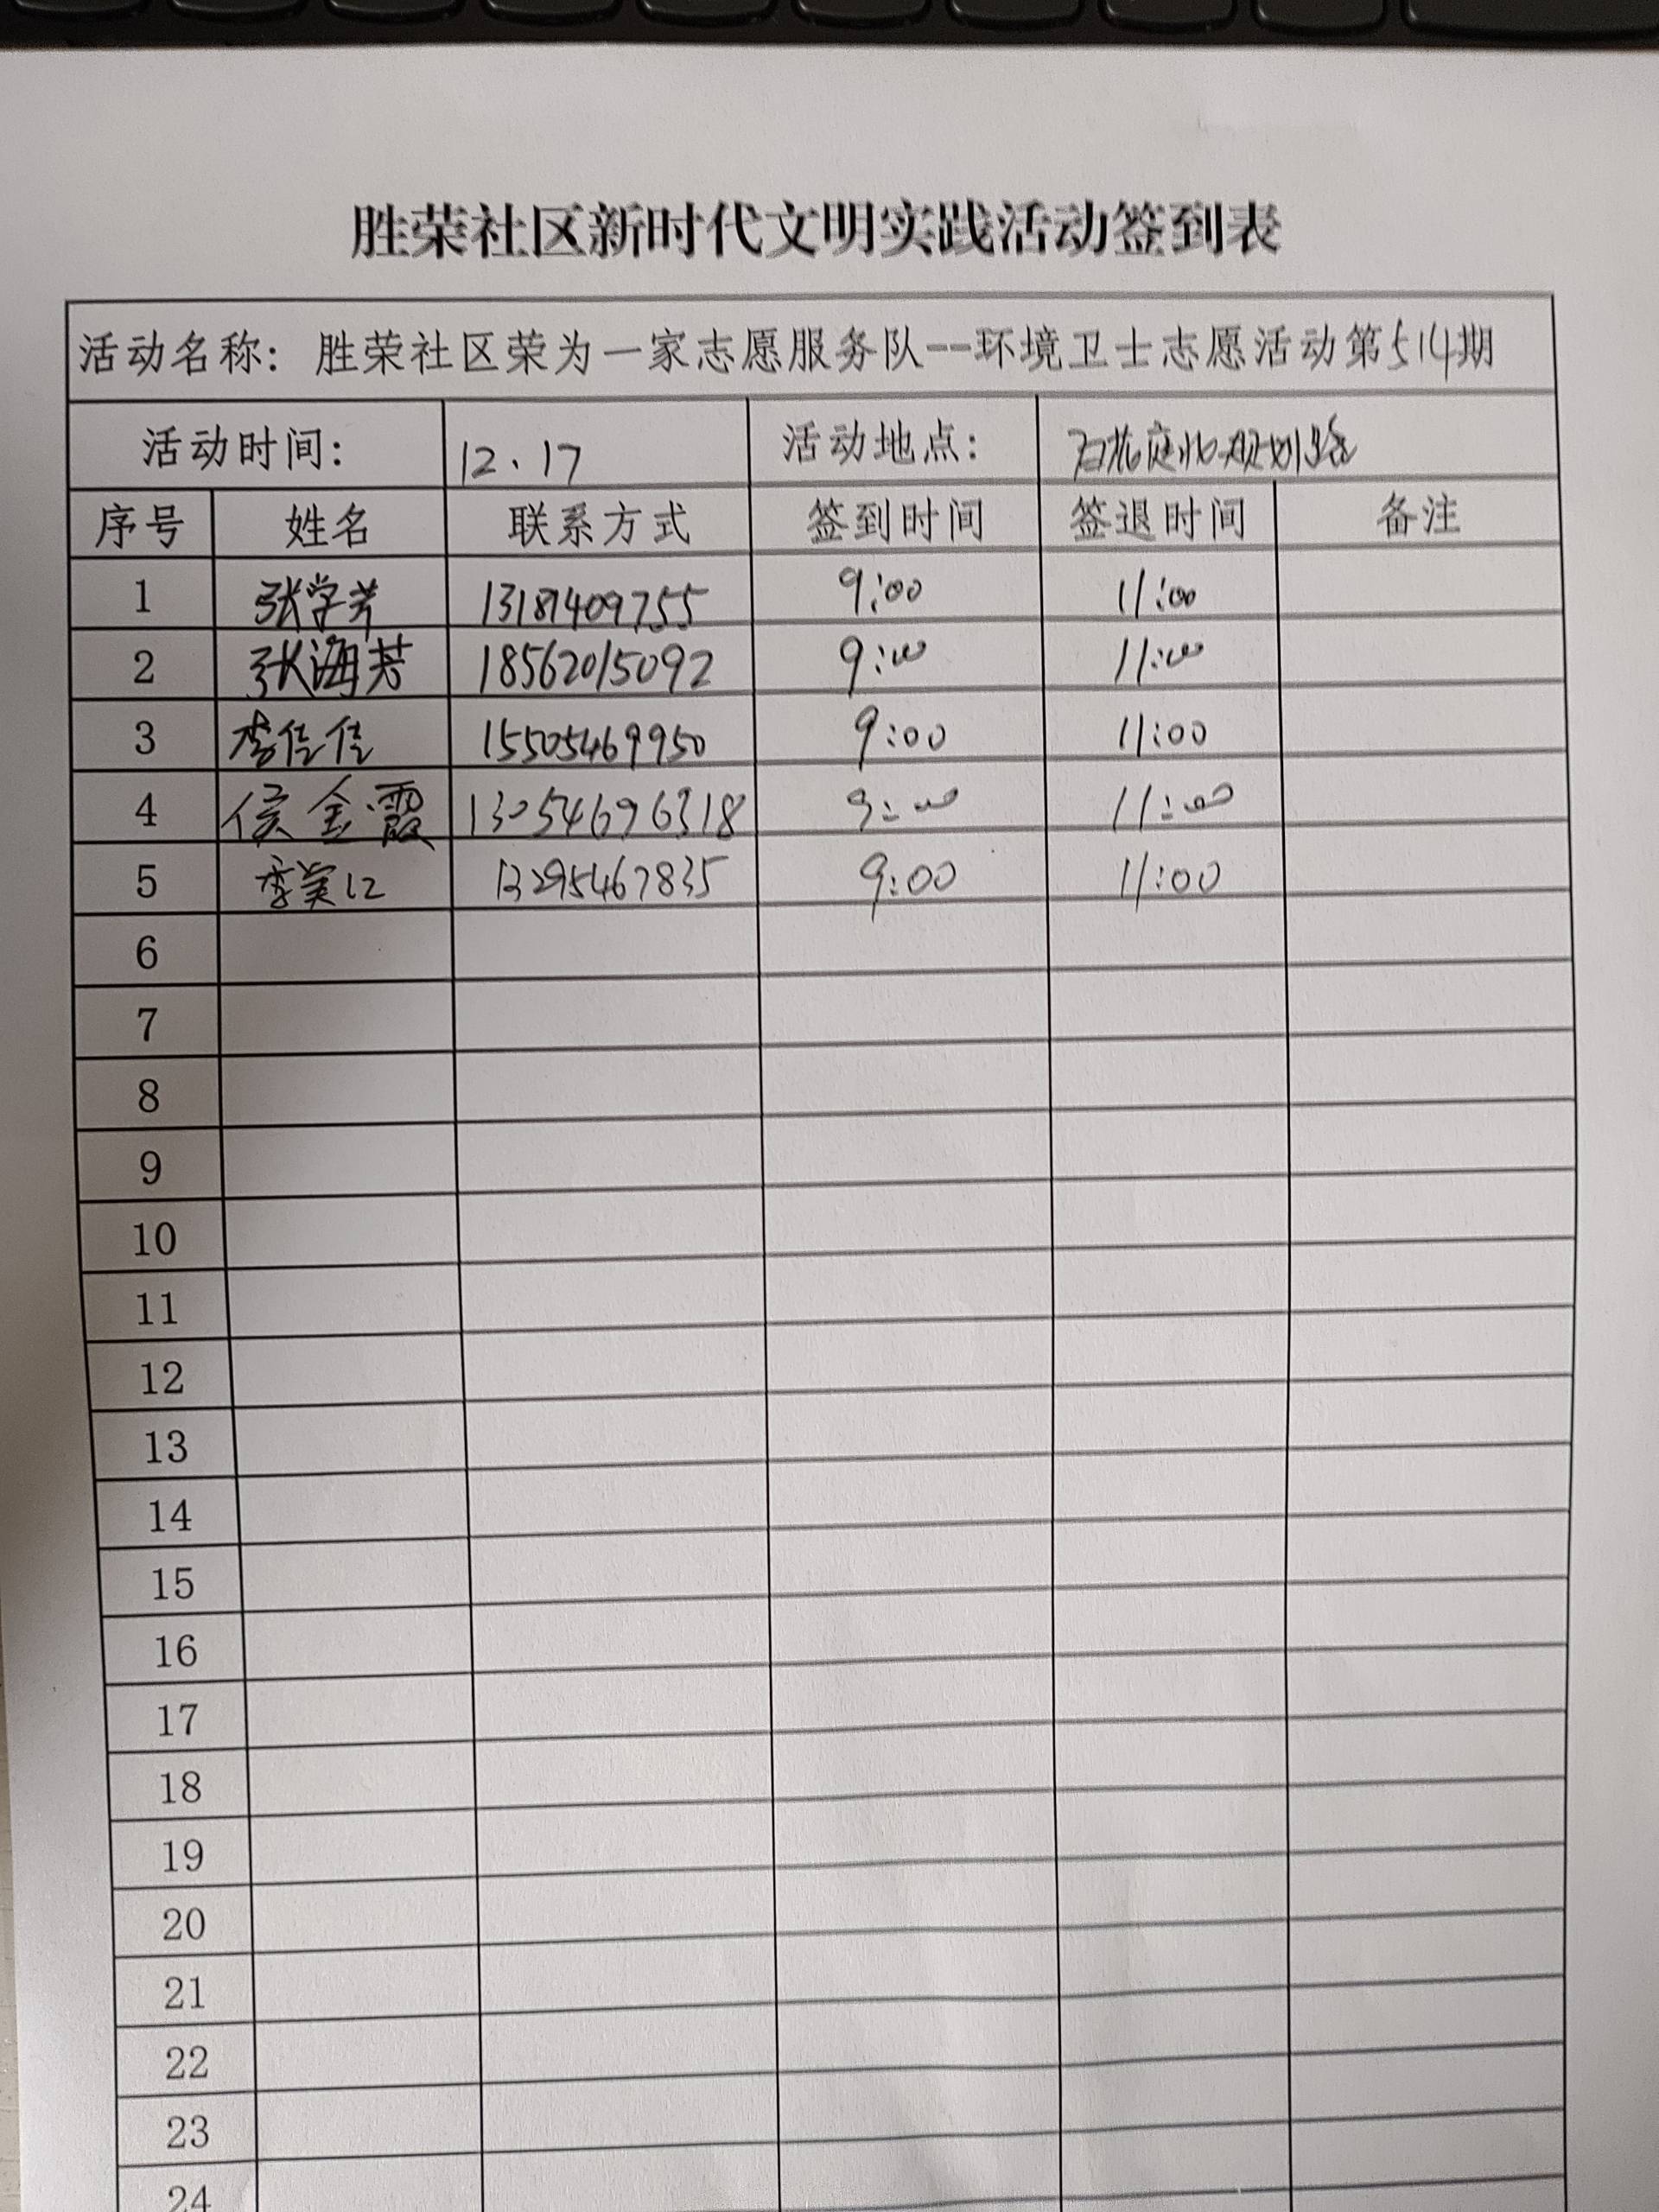 胜荣社区新时代文明实践活动签到表
活动名称：胜荣社区荣为一家志愿服务队--环境卫士志愿活动第514期
活动时间： 12.17 活动地点： 庭北规划路
序号 姓名 联系方式 签到时间 签退时间 备注
1 张学芳 13181409755 9:00 11:00
2 张海芳 18562015092 9:00 11:00
3 李佳佳 15505469950 9:00 11:00
4 侯金霞 13054696318 9:00 11:00
5 李美江 13295467835 9:00 11:00
6
7
8
9
10
11
12
13
14
15
16
17
18
19
20
21
22
23
24